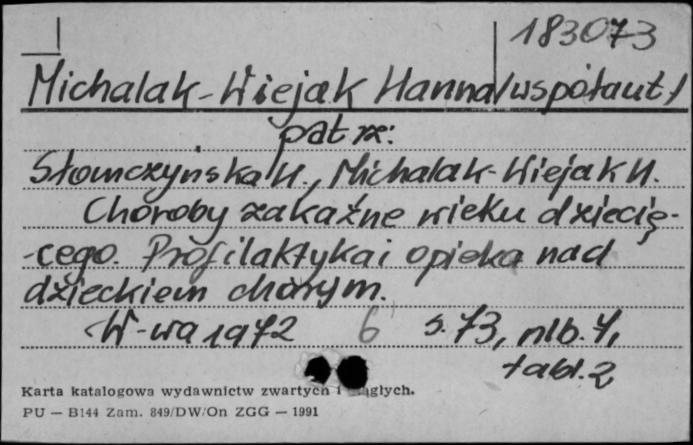 183073
Michalak-Wiejak Hanna /współaut/
patrz:
Słomczyńska H., Michalak-Wiejak H.
Choroby zakaźne wieku dziecię-
-cego. Profilaktyka i opieka nad
dzieckiem chorym.
W-wa 1972 6 s. 73, nlb. 4,
tabl. 2
Karta katalogowa wydawnictw zwartych i ciągłych.
PU — B144 Zam. 849/DW/On ZGG — 1991